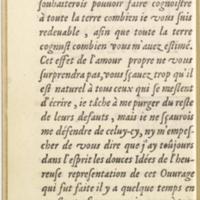 souhaiterois pouvoir faire cognoistre
à toute la terre combien ie vous suis
redeuable, afin que toute la terre
cognust combien vous m'auez estimé.
Cet effet de l'amour propre ne vous
surprendra pas, vous sçauez trop qu'il
est naturel à tous ceux qui se meslent
d'écrire, ie tâche à me purger du reste
de leurs defauts, mais ie ne sçaurois
me défendre de celuy-cy, ny m'empes-
cher de vous dire que j'ay toûjours
dans l'esprit les douces Idées de l'heu-
reuse representation de cet Ouurage
qui fut faite il y a quelque temps en